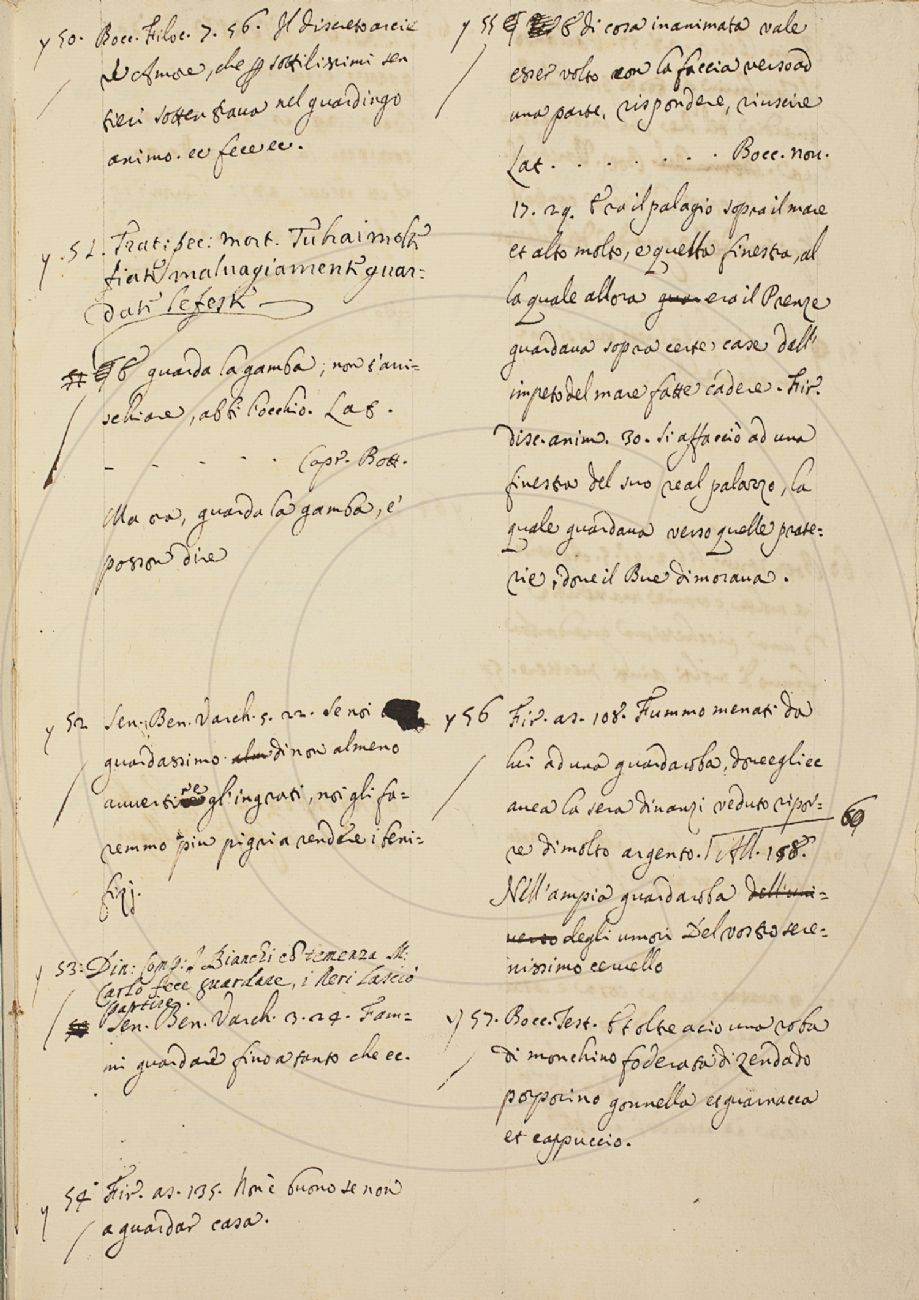 y 50. Bocc. Filoc. 7. 56. Il discreto arcie
re Amore, che p sottilissimi sen
tieri sottentrava nel guardingo
animo. ec fece ec.
y. 51. Tratt: pec: mort. Tu hai molti
fiate malvagiamente guar:
date le feste
§ guarda la gamba; non t'arri=
schiare, abbi l'occhio. Lat.
- . - . . Capr. Bott.
Ma ora, guarda la gamba, e'
posson dire
y 52 Sen. Ben. Varch. 5. 22. Se noi
guardassimo di non almeno
avvertire gli ingrati, noi gli fa=
remmo piu pigri a rendere i beni=
fizj.
y 53: Din: Comp: I Bianchi ebber temenza M:
Carlo fece guardare, i Neri lasciò
partire.
Sen. Ben. Varch. 3. 24. Fam=
mi guardare fino a tanto che ec.
y 54 Fir. as. 135. Non è buono se non
a guardar casa.
y 55 § di cosa inanimata vale
esser volto con la faccia verso ad
una parte, rispondere, riuscire
Lat. . . . . . . Bocc. nov.
17. 29. Era il palagio sopra il mare
et alto molto, e quella finestra, al
la quale allora era il Prenze
guardava sopra certe case dall'
impeto del mare fatte cadere. Fir.
disc. anim. 30. Si affacciò ad una
finestra del suo real palazzo, la
quale guardava verso quelle prate=
rie, dove il Bue dimorava.
y 56 Fir. as. 108. Fummo menati da
lui ad una guardaroba, dove egli ec
avea la sera dinanzi veduto ripor=
re di molto argento. All. 158. 69
Nell'ampia guardaroba dell'uni=
verso degli umori Del vostro sere=
nissimo cervello
y 57. Bocc. Test. Et oltre a cio una roba
di monchino foderata di zendado
porporino gonnella et guarnacca
et cappuccio.